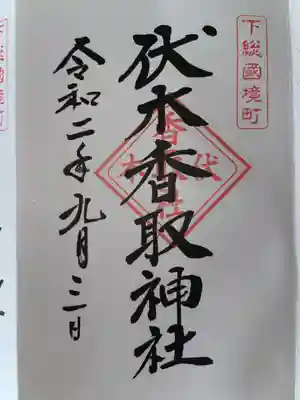 下総國境町
伏木香取神社
令和二年九月三日